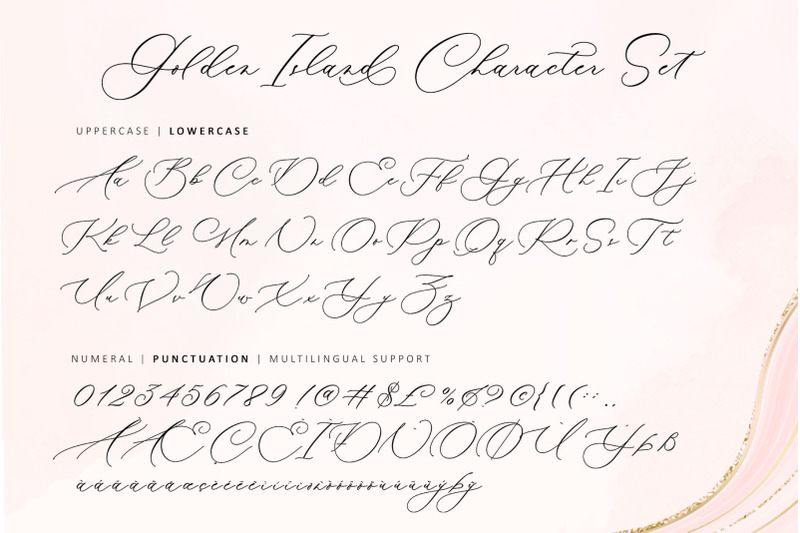 Golden Island Character Set
UPPERCASE | LOWERCASE
Aa Bb Cc Dd Ee Ff Gg Hh Ii Jj
Kk Ll Mm Nn Oo Pp Qq Rr Ss Tt
Uu Vv Ww Xx Yy Zz
NUMERAL | PUNCTUATION | MULTILINGUAL SUPPORT
0123456789 !@#$£%&? ©{[(:;.,